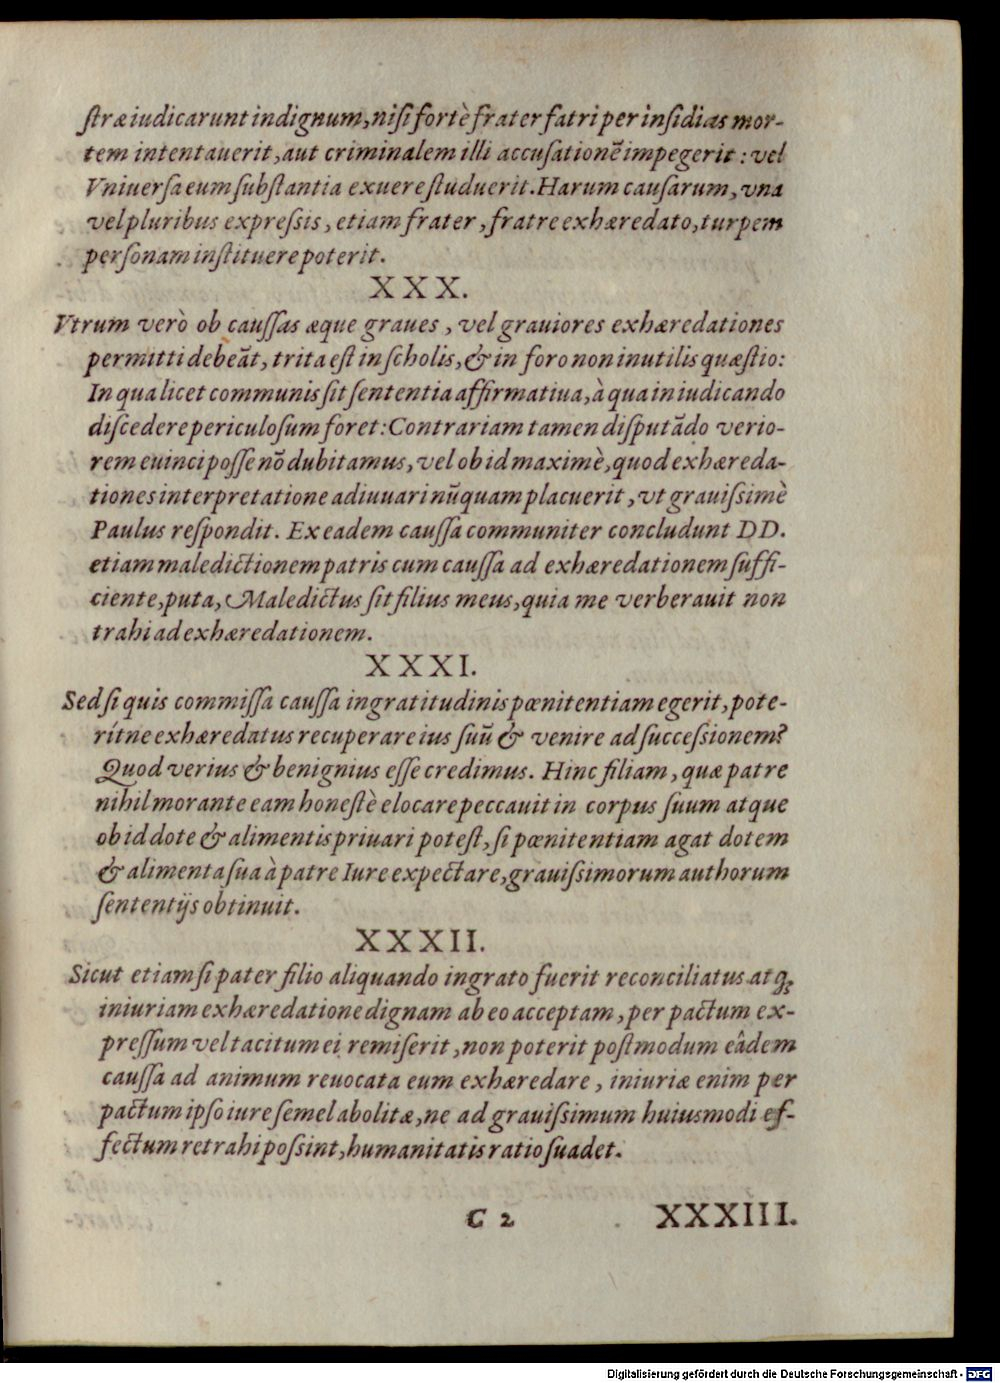 ſtræ iudicarunt indignum, niſi fortè frater fatri per inſidias mor-
tem intentauerit, aut criminalem illi accuſationē impegerit : vel
Vniuerſa eum ſubſtantia exuere ſtuduerit. Harum cauſarum, vna
vel pluribus expreſsis, etiam frater, fratre exhæredato, turpem
perſonam inſtituere poterit.
XXX.
Vtrum verò ob cauſſas æque graues, vel grauiores exhæredationes
permitti debeāt, trita eſt in ſcholis, & in foro non inutilis quæſtio:
In qua licet communis ſit ſententia affirmatiua, à qua in iudicando
diſcedere periculoſum foret: Contrariam tamen diſputādo verio-
rem euinci poſſe nō dubitamus, vel ob id maximè, quod exhæreda-
tiones interpretatione adiuuari nūquam placuerit, vt grauiſsimè
Paulus reſpondit. Ex eadem cauſſa communiter concludunt DD.
etiam maledictionem patris cum cauſſa ad exhæredationem ſuffi-
ciente, puta, Maledictus ſit filius meus, quia me verberauit non
trahi ad exhæredationem.
XXXI.
Sed ſi quis commiſſa cauſſa ingratitudinis pœnitentiam egerit, pote-
rítne exhæredatus recuperare ius ſuū & venire ad ſucceſsionem?
Quod verius & benignius eſſe credimus. Hinc filiam, quæ patre
nihil morante eam honeſtè elocare peccauit in corpus ſuum atque
ob id dote & alimentis priuari poteſt, ſi pœnitentiam agat dotem
& alimenta ſua à patre Iure expectare, grauiſsimorum authorum
ſententijs obtinuit.
XXXII.
Sicut etiam ſi pater filio aliquando ingrato fuerit reconciliatus atq;
iniuriam exhæredatione dignam ab eo acceptam, per pactum ex-
preſſum vel tacitum ei remiſerit, non poterit poſtmodum eâdem
cauſſa ad animum reuocata eum exhæredare, iniuriæ enim per
pactum ipſo iure ſemel abolitæ, ne ad grauiſsimum huiusmodi ef-
fectum retrahi poſsint, humanitatis ratio ſuadet.
C 2 XXXIII.
Digitalisierung gefördert durch die Deutsche Forschungsgemeinschaft - DFG